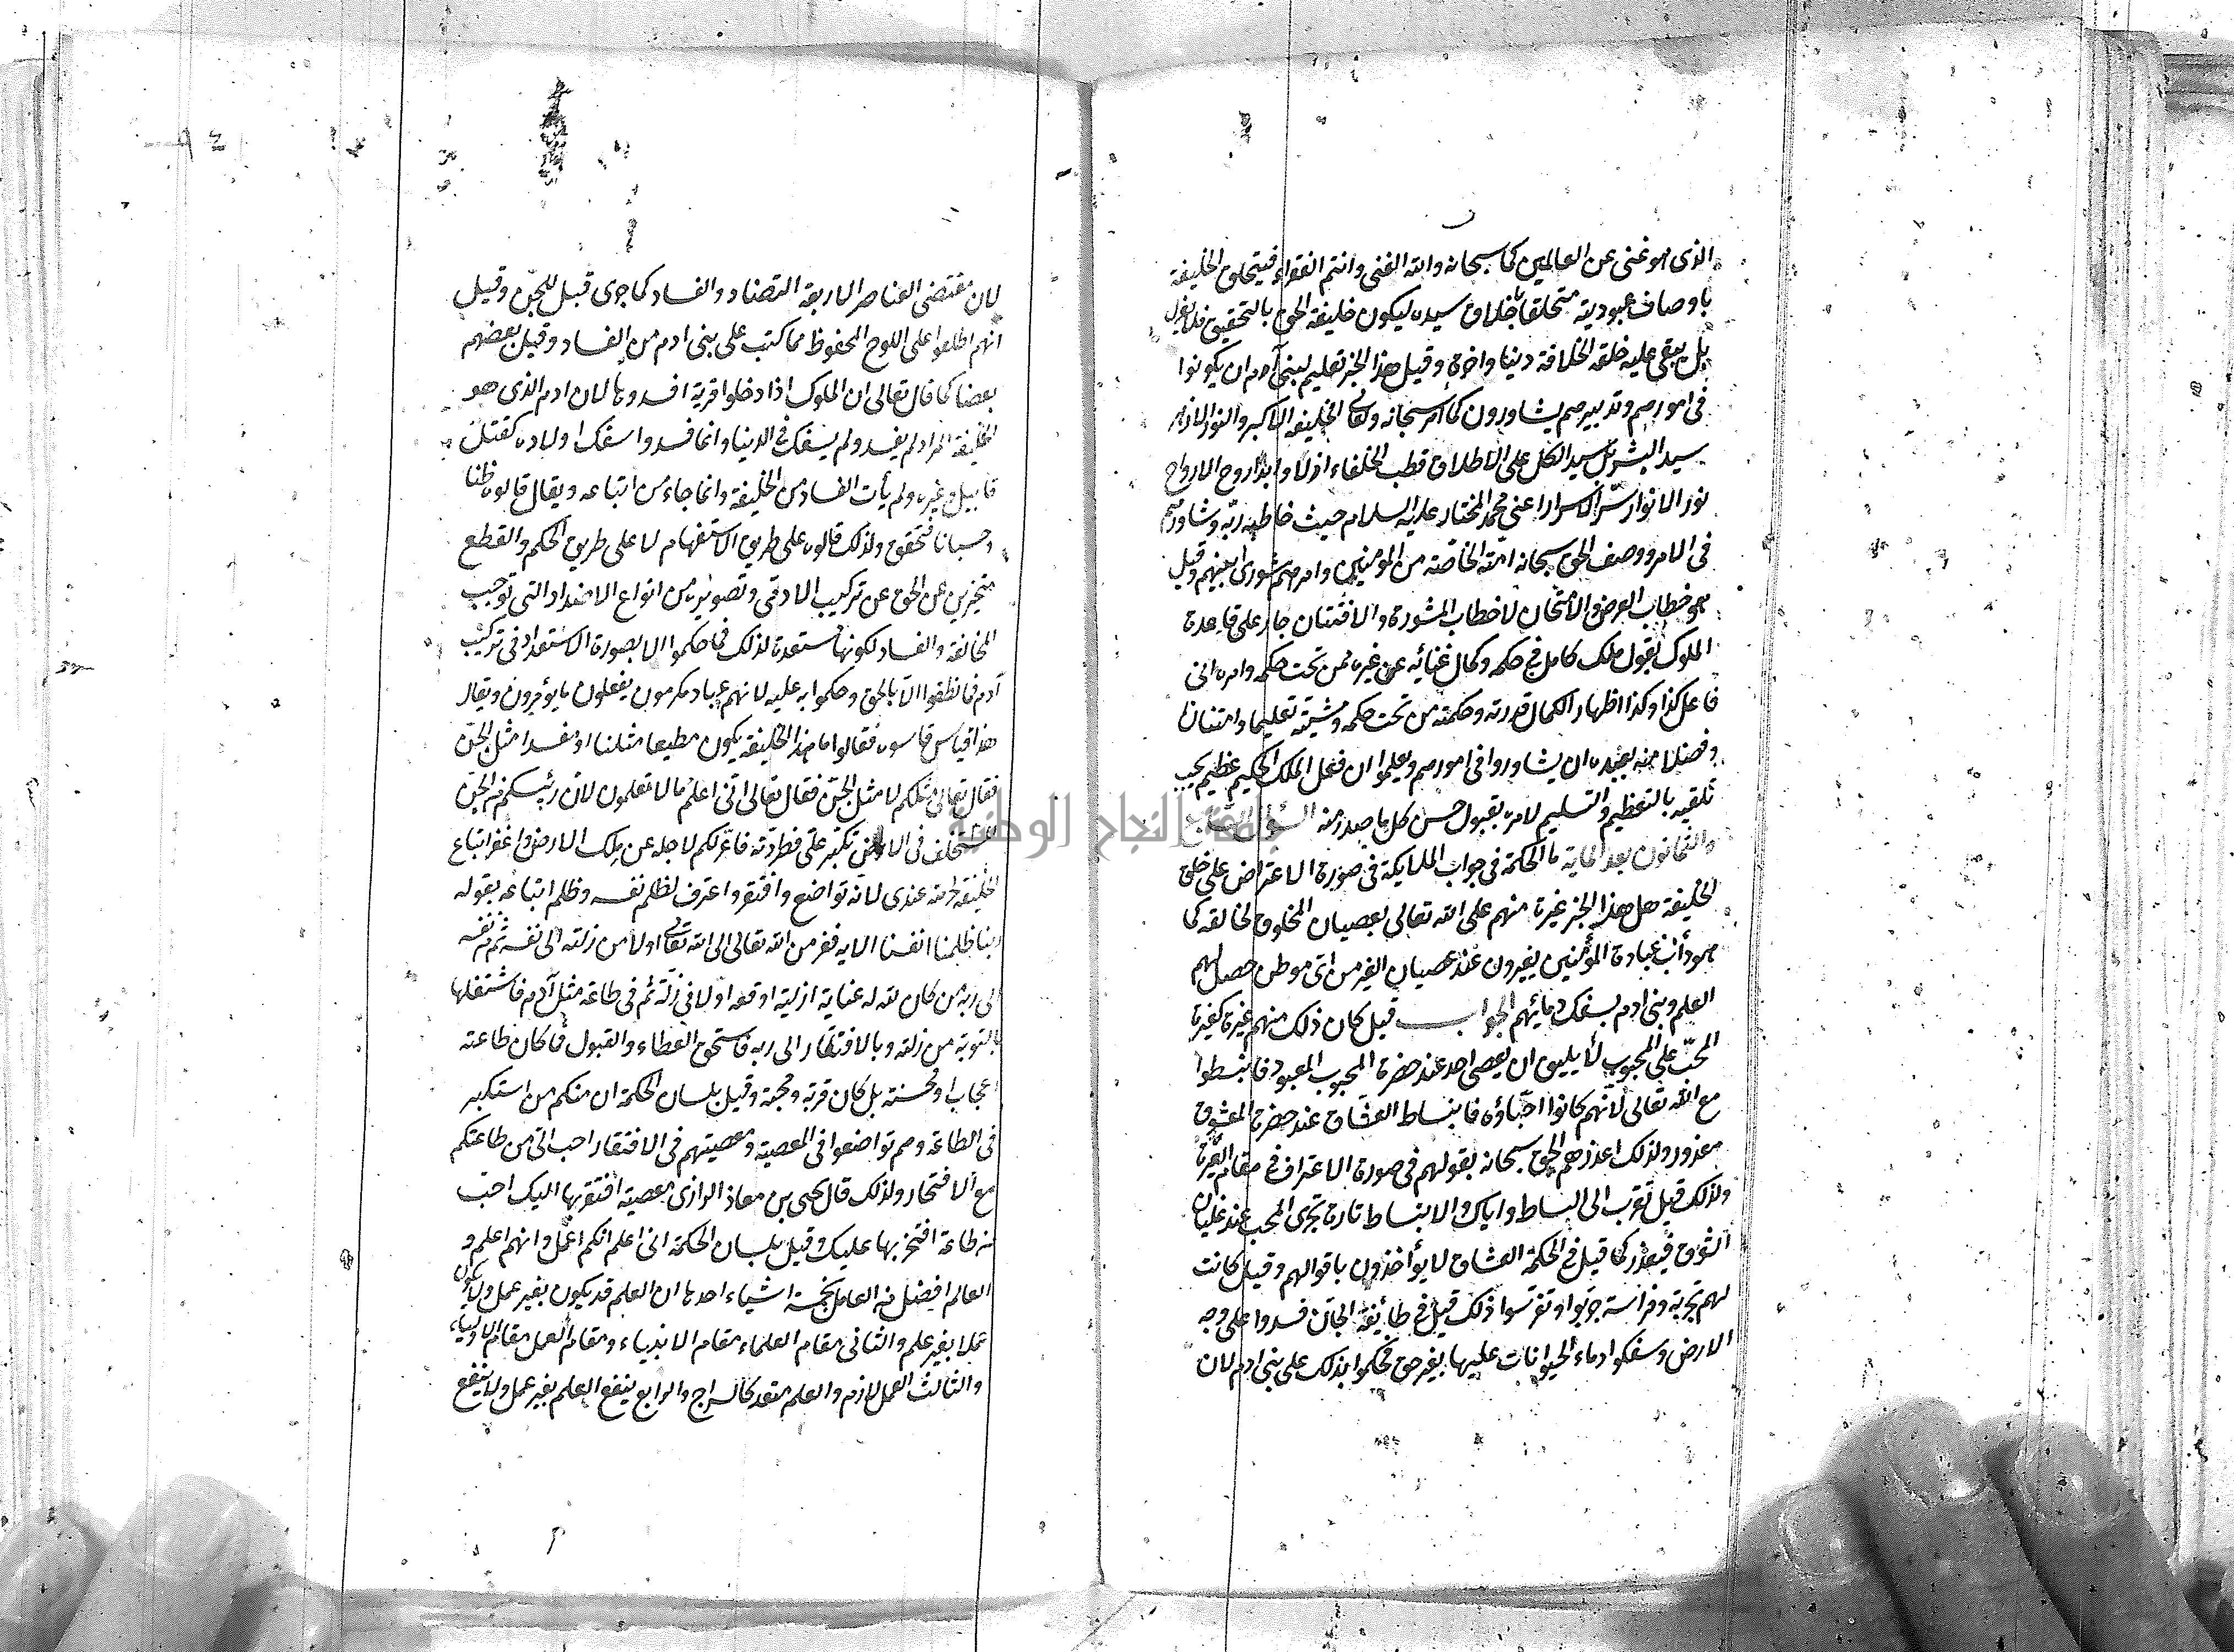 الذى هو غنى عن العالمين كما سبحانه والله الغنى وانتم الفقراء فيتحلى الخليفة
باوصاف عبودية متخلقا باخلاق سيده ليكون خليفة الحق بالتحقيق فلا يعزل
بل يبقى عليه خلقه الخلافة دينا واخرة وقيل هذا الخبر تعليم لبنى آدم ان يكونوا
فى امورهم وتدبيرهم يشاورون كما امر سبحانه وتعالى الخليفة الاكبر والنور الازهر
سيد البشر بل سيد الكل على الاطلاق قطب الخلفاء ازلا وابدا روح الارواح
نور الانوار سر الاسرار اعنى محمد المختار عليه السلام حيث خاطبه ربه وشاورهم
فى الامر ووصف الحق سبحانه امته الخاصة من المؤمنين وامرهم شورى بينهم وقيل
هو خطاب العرض والامتحان لا خطاب المشورة والافتتان جار على قاعدة
الملوك يقول ملك كامل فى حكمه وكمال غنائه عن غيره لمن تحت حكمه وامره انى
فاعل كذا وكذا اظهار الكمال قدرته وحكمته من تحت حكمه ومشيته تعليما وامتنانا
وفضلا منه لعبيده ان يشاوروا فى امورهم ويعلموا ان فعل الملك الحكيم عظيم يجب
تلقيه بالتعظيم والتسليم لامره بقبول حسن كل ما صدر منه السؤال
والثمانون بعد الماية ما الحكمة فى جواب الملايكة فى صورة الاعتراض على خلق
الخليفة هل هذا الخبر غيرة منهم على الله تعالى بعصيان المخلوق لخالقه كما
هو دأب عبادة المؤمنين يغيرون عند عصيان الغير من اى موطن حصل لهم
العلم وبنى ادم بسفك دمائهم الجواب قيل كان ذلك منهم غيرة كغيرة
المحب على المحبوب لا يليق ان يعصى احد عند حضرة المحبوب المعبود فانبسطوا
مع الله تعالى لانهم كانوا احباؤه فانبساط العشاق عند حضرة المعشوق
معذور ولذلك اعذرهم الحق سبحانه بقولهم فى صورة الاعتراف فى مقام الغيرة
ولذلك قيل تقرب الى البساط واياك والانبساط تارة تجرى المحب عند غليان
الشوق فيعذر كما قيل فى الحكمة العشاق لا يؤاخذون باقوالهم وقيل كانت
لهم تجربة وفراسة جربوا وتفرسوا ذلك قيل فى طائفة الجان فسدوا على وجه
الارض وسفكوا دماء الحيوانات عليها بغير حق فحكموا بذلك على بنى ادم لان
لان مقتضى العناصر الاربعة التضاد والفساد كما جرى قبل للجن وقيل
انهم اطلعوا على اللوح المحفوظ مما كتب على بنى ادم من الفساد وقيل بعضهم
بعضا كما قال تعالى ان الملوك اذا دخلوا قرية افسدوها لان ادم الذى هو
الخليفة المراد لم يفسد ولم يسفك فى الدينا وانما فسدوا سفك اولاده كقتل
قابيل وغيره ولم يأت الفساد من الخليفة وانما جاء من اتباعه ويقال قالوه ظنا
وحسبانا فتحقق ولذلك قالوه على طريق الاستفهام لا على طريق الحكم والقطع
متخيرين عن الحق عن تركيب الادقى وتصويره من انواع الاضداد التى توجب
المخالفة والفساد لكونها مستعدة لذلك فما حكموا الا بصورة الاستعداد فى تركيب
آدم فما نطقوا الا بالحق وحكموا به عليه لانهم عباد مكرمون يفعلون ما يؤمرون ويقال
هذا قياس قاسوه فقالوا ما هذا الخليفة يكون مطيعا مثلنا او مفسدا مثل الجن
فقال تعالى مثلكم لا مثل الجن فقال تعالى انى اعلم ما لا تعلمون لان رئيسكم من الجن
استخلف فى الارض تكبر على فطردته فاعزلكم لاجله عن ملك الارض واغفر اتباع
الخليفة لحرمته عندى لانه تواضع وافتقر واعترف لظلم نفسه وظلم اتباعه بقوله
ربنا ظلمنا انفسنا الايه ففر من الله تعالى الى الله تعالى اولا من زلته الى نفسه ثم من نفسه
الى ربه من كان لله له عناية ازلية اوقعه اولا فى زلة ثم فى طاعة مثل آدم فاشتغلها
بالتوبة من زلته وبالافتقار الى ربه فاستحق العطاء والقبول فما كان طاعته
اعجابا ومحسنة بل كان قربة ومحبة وقيل بلسان الحكمة ان منكم من استكبر
فى الطاعة وهم تواضعوا فى المعصية ومعصيتهم فى الافتقار احب الى من طاعتكم
مع الافتخار ولذلك قال يحيى بن معاذ الرازى معصية افتقر بها اليك احب
من طاعة افتخر بها عليك وقيل بلسان الحكمة انى اعلم انكم اعمل وانهم اعلم و
العالم افضل من العامل بخمسة اشياء احدها ان العلم قد يكون بغير عمل ولا يكون
عملا بغير علم والثانى مقام العلماء مقام الانبياء ومقام العمل مقام الاولياء
والثالث العمل لازم والعلم متعد كالسراج والرابع ينفع العلم بغير عمل ولا ينفع
جامعة النجاح الوطنية